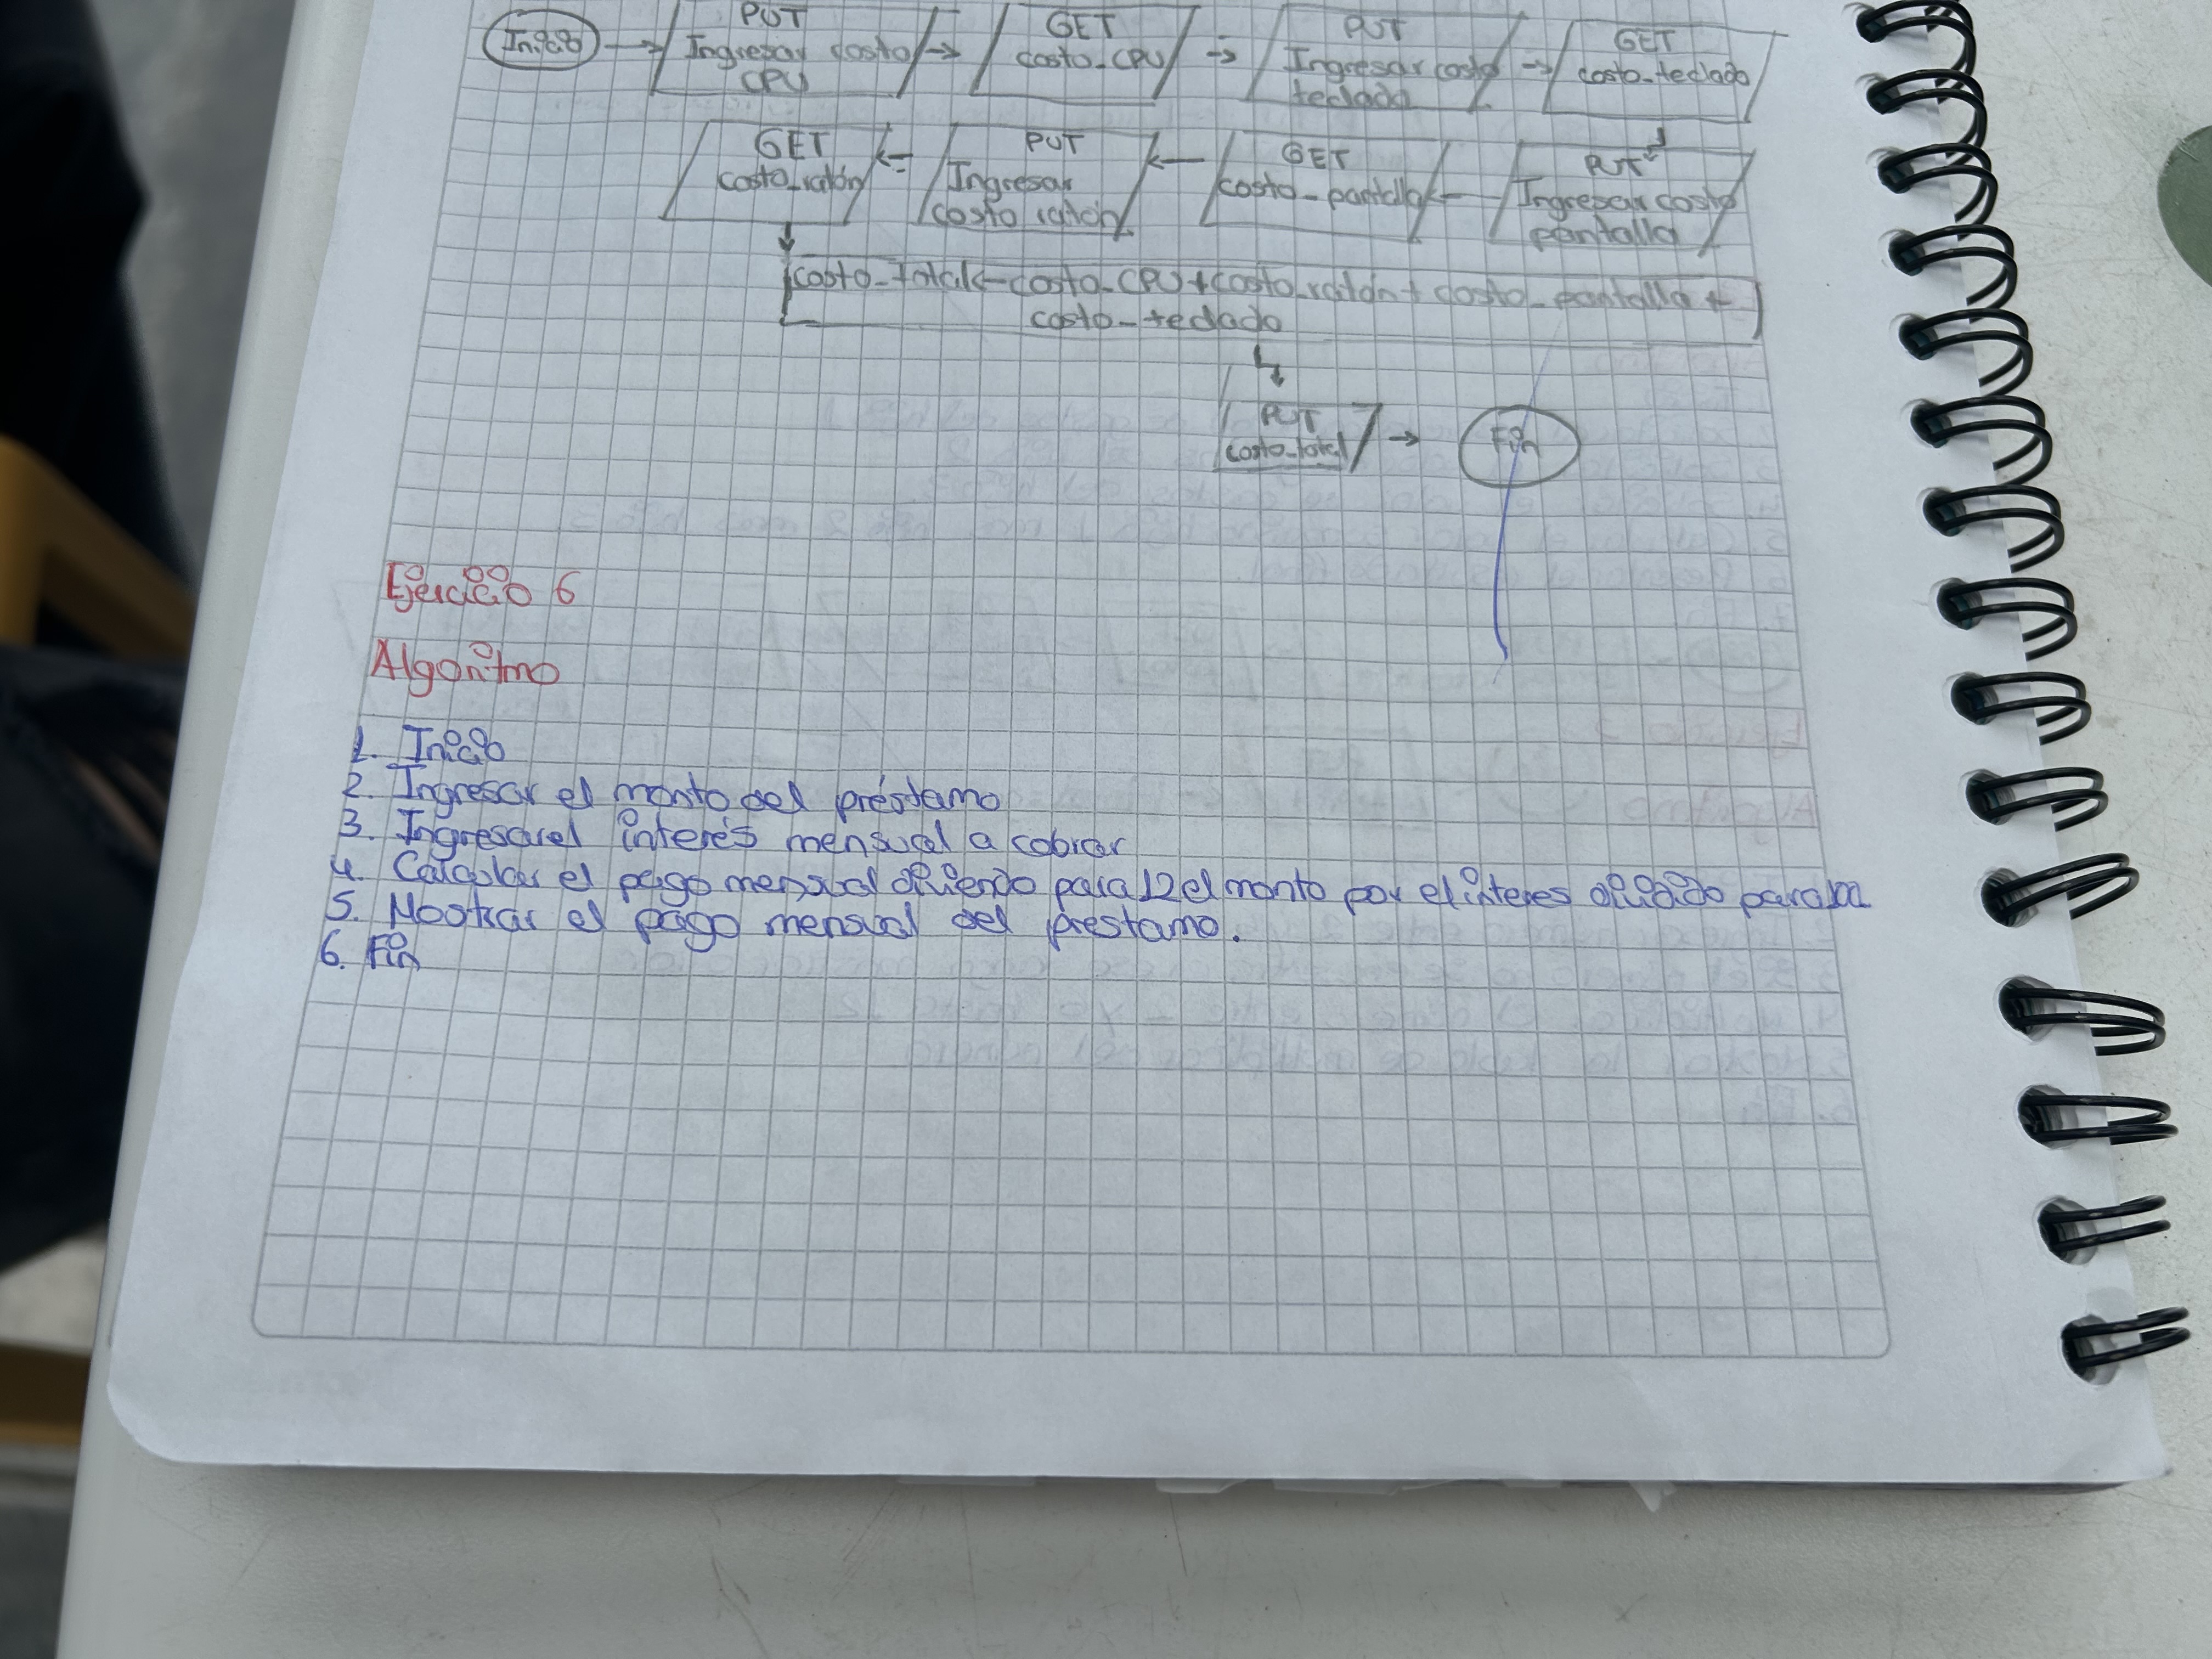 Inicio
PUT
Ingresar costo
CPU
GET
costo_CPU
PUT
Ingresar costo
teclado
GET
costo_teclado
PUT
Ingresar costo
pantalla
GET
costo_pantalla
PUT
Ingresar
costo ratón
GET
costo_ratón
costo_total←costo_CPU+costo_ratón+costo_pantalla+
costo_teclado
PUT
costo_total
Fin
Ejercicio 6
Algoritmo
1. Inicio
2. Ingresar el monto del préstamo
3. Ingresar el interés mensual a cobrar
4. Calcular el pago mensual para 12 el monto por el interes dividido para
5. Mostrar el pago mensual del prestamo.
6. Fin